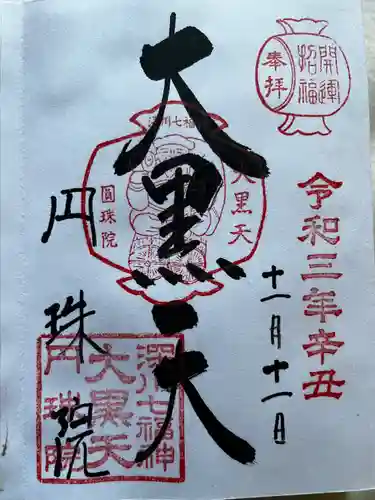 開運
招福
奉拝
令和三年辛丑
十一月十一日
深川七福
大黒天
圓珠院
大黒天
深川七福神
大黒天
円珠院
円珠院